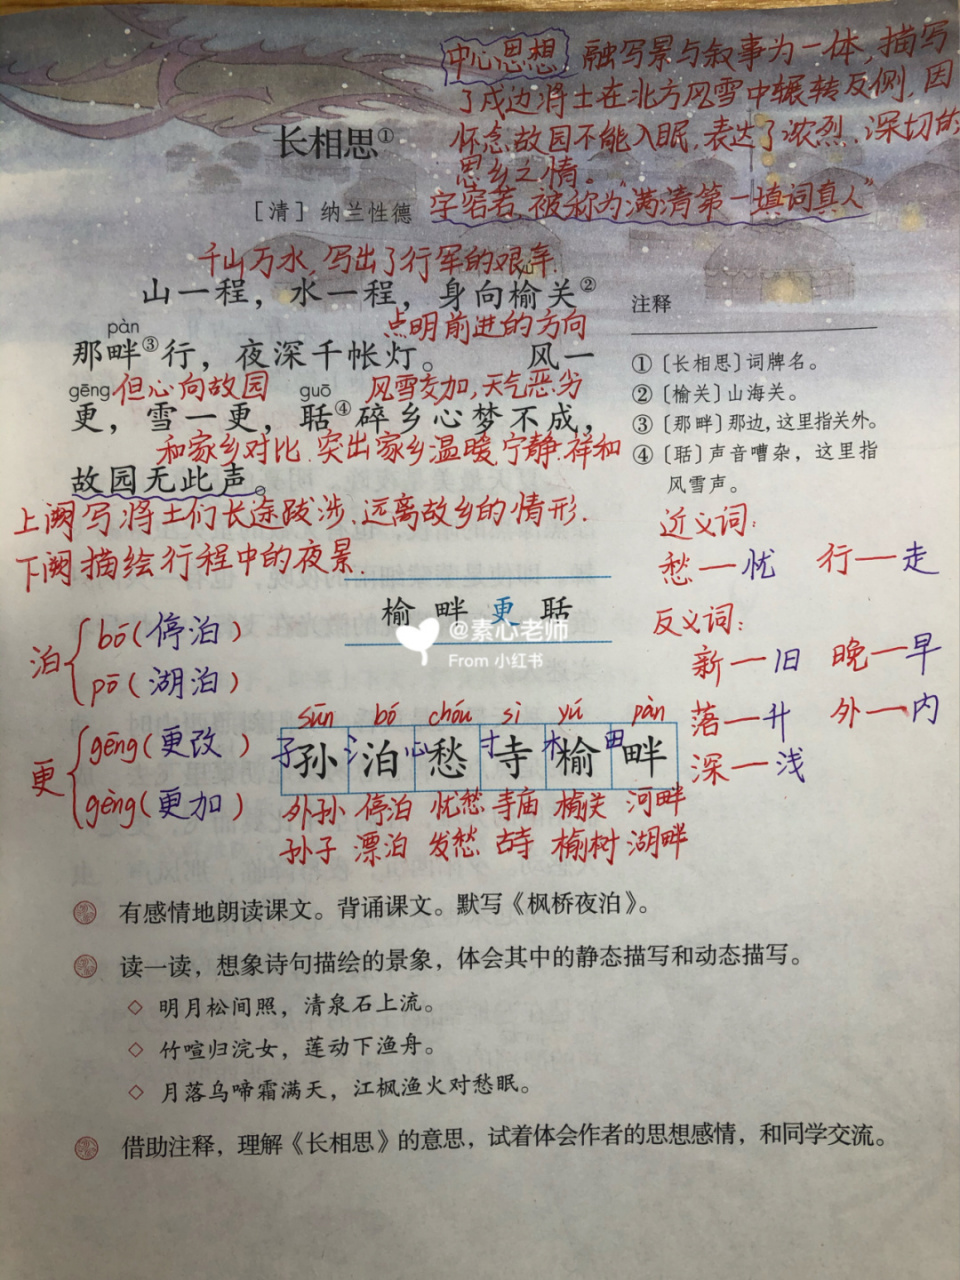 中心思想 融写景与叙事为一体,描写
了戍边将士在北方风雪中辗转反侧,因
怀念故园不能入眠,表达了浓烈、深切的
思乡之情。
长相思①
[清] 纳兰性德
字容若,被称为“满清第一填词真人”
千山万水,写出了行军的艰辛.
yú
山一程，水一程，身向榆关②
点明前进的方向
pàn
那畔③行，夜深千帐灯。 风一
gēng 但心向故园 guō 风雪交加,天气恶劣
更，雪一更，聒④碎乡心梦不成，
和家乡对比 突出家乡温暖,宁静,祥和
故园无此声。
上阕写将士们长途跋涉、远离故乡的情形.
下阕描绘行程中的夜景.
注释
① 〔长相思〕词牌名。
② 〔榆关〕山海关。
③ 〔那畔〕那边，这里指关外。
④ 〔聒〕声音嘈杂，这里指
风雪声。
近义词:
愁—忧 行—走
反义词:
新—旧 晚—早
落—升 外—内
深—浅
榆 畔 更 聒
@素心老师
From 小红书
泊 bó(停泊)
pō(湖泊)
更 gēng(更改)
gèng(更加)
sūn bó chóu sì yú pàn
子 氵 心 寸 木 田
孙 泊 愁 寺 榆 畔
外孙 停泊 忧愁 寺庙 榆关 河畔
孙子 漂泊 发愁 古寺 榆树 湖畔
有感情地朗读课文。背诵课文。默写《枫桥夜泊》。
读一读，想象诗句描绘的景象，体会其中的静态描写和动态描写。
◇ 明月松间照，清泉石上流。
◇ 竹喧归浣女，莲动下渔舟。
◇ 月落乌啼霜满天，江枫渔火对愁眠。
借助注释，理解《长相思》的意思，试着体会作者的思想感情，和同学交流。